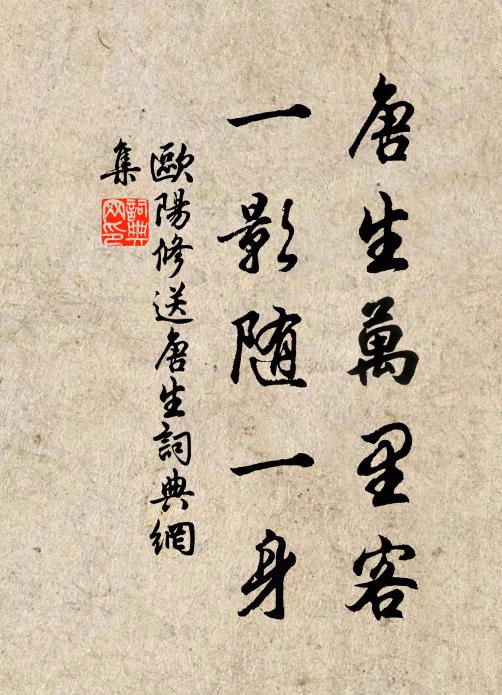 唐生萬里客
一影随一身
歐陽修送唐生詞典網
集
詞典
网印